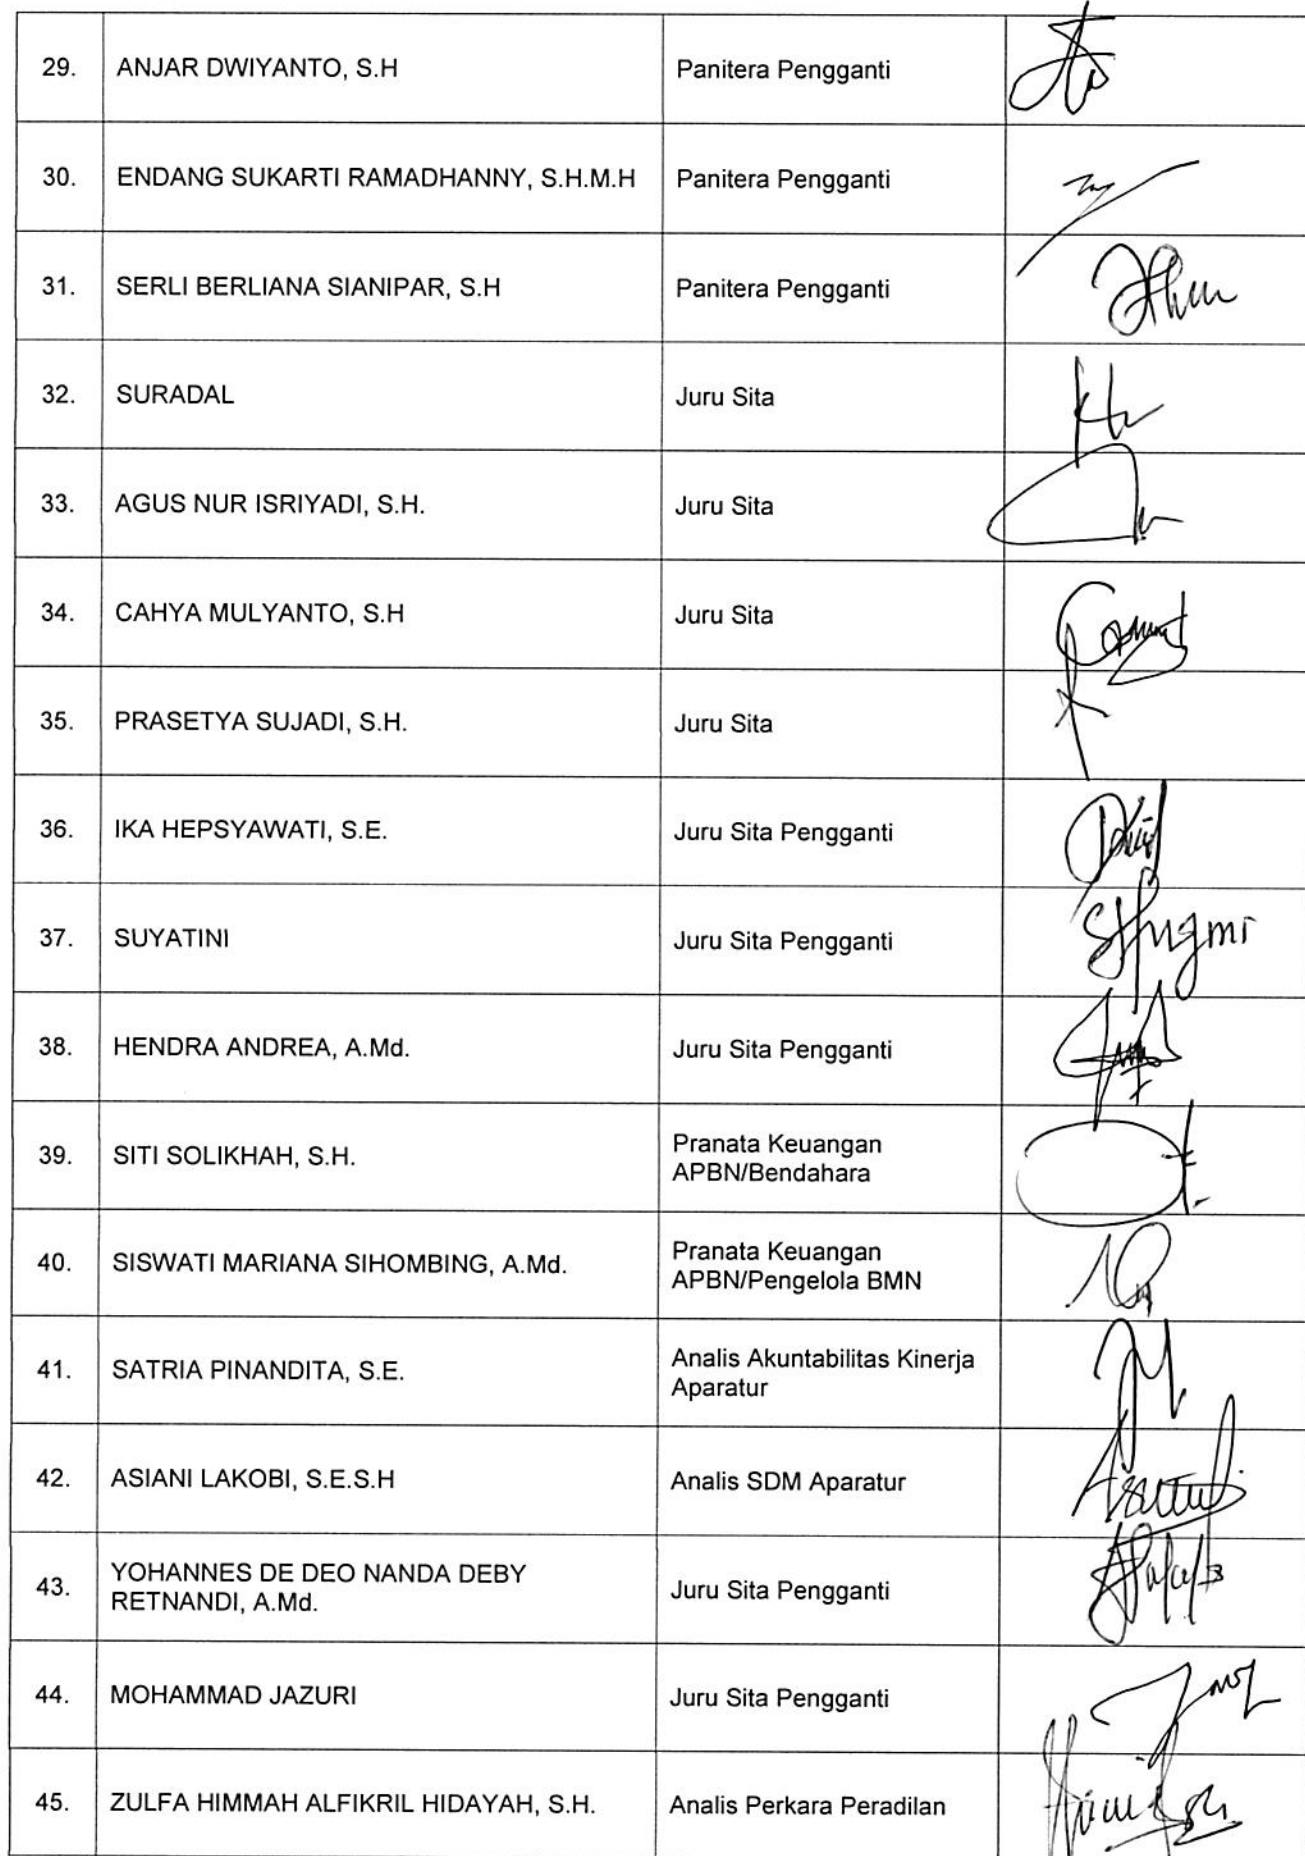 29. ANJAR DWIYANTO, S.H Panitera Pengganti
30. ENDANG SUKARTI RAMADHANNY, S.H.M.H Panitera Pengganti
31. SERLI BERLIANA SIANIPAR, S.H Panitera Pengganti
32. SURADAL Juru Sita
33. AGUS NUR ISRIYADI, S.H. Juru Sita
34. CAHYA MULYANTO, S.H Juru Sita
35. PRASETYA SUJADI, S.H. Juru Sita
36. IKA HEPSYAWATI, S.E. Juru Sita Pengganti
37. SUYATINI Juru Sita Pengganti
38. HENDRA ANDREA, A.Md. Juru Sita Pengganti
39. SITI SOLIKHAH, S.H. Pranata Keuangan
APBN/Bendahara
40. SISWATI MARIANA SIHOMBING, A.Md. Pranata Keuangan
APBN/Pengelola BMN
41. SATRIA PINANDITA, S.E. Analis Akuntabilitas Kinerja
Aparatur
42. ASIANI LAKOBI, S.E.S.H Analis SDM Aparatur
43. YOHANNES DE DEO NANDA DEBY
RETNANDI, A.Md. Juru Sita Pengganti
44. MOHAMMAD JAZURI Juru Sita Pengganti
45. ZULFA HIMMAH ALFIKRIL HIDAYAH, S.H. Analis Perkara Peradilan